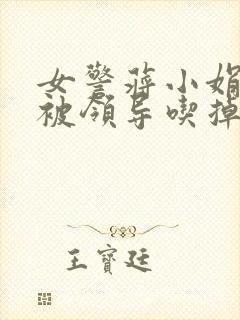 女警蒋小娟
被领导喫掉
王寳廷